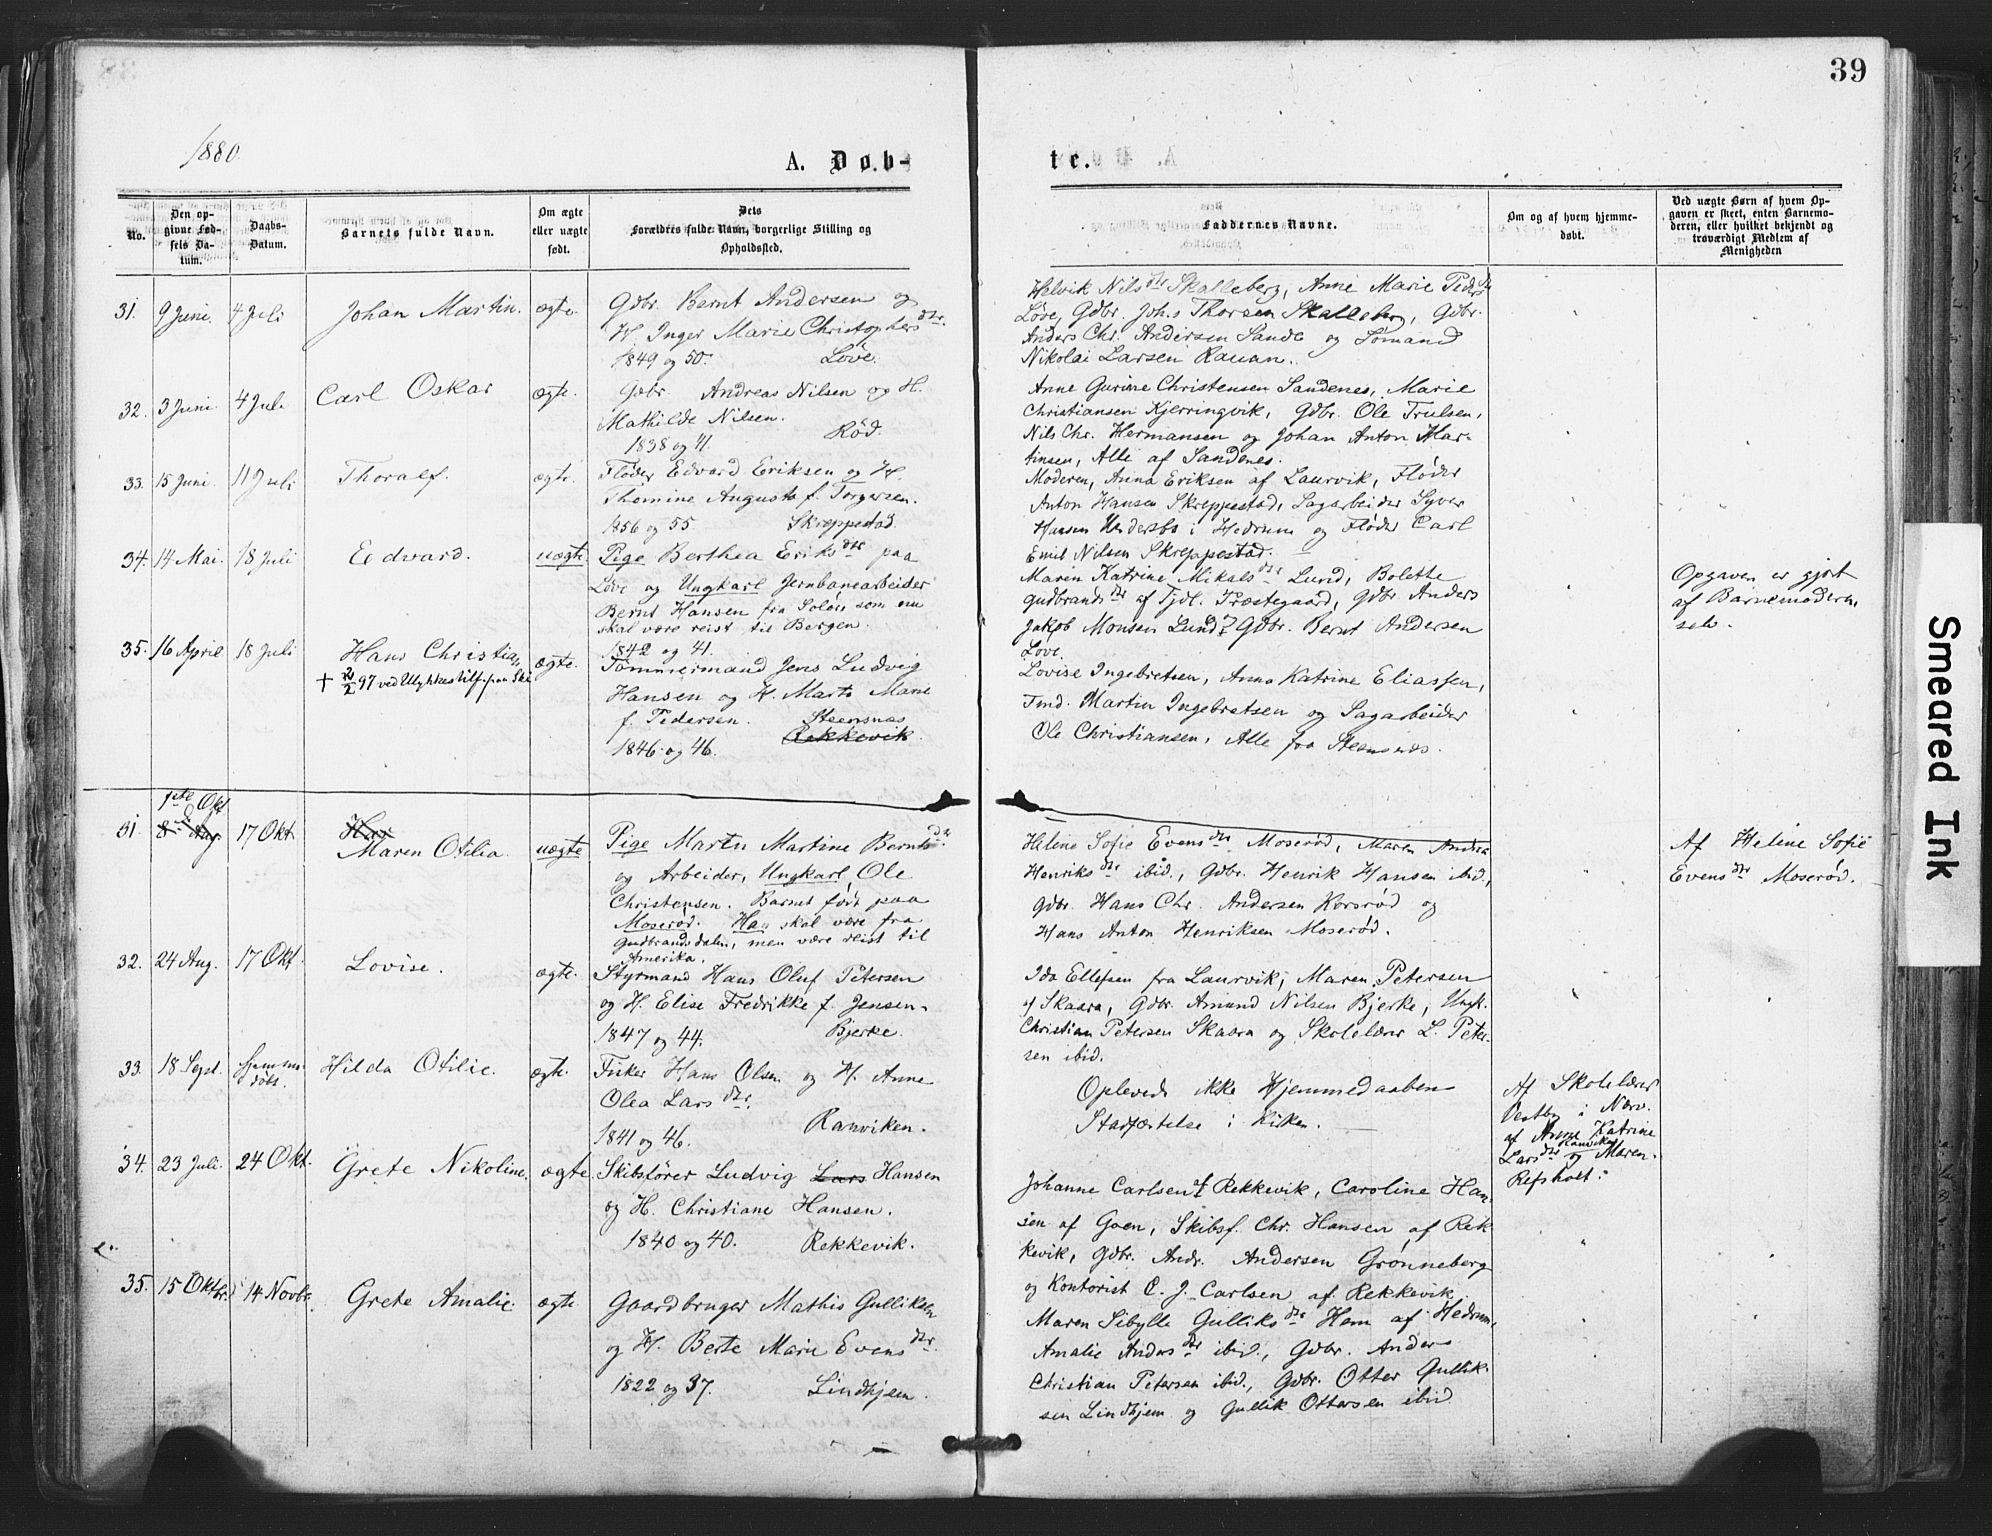 39
1880.
A. Døb-
te.
No.
Den op-
givne Fød-
sels Da-
tum.
Daabs-
Datum.
Barnets fulde Navn.
Om ægte
eller uægte
født.
Dets
Forældres fulde Navn, borgerlige Stilling og
Opholdssted.
Faddernes Navne.
Om og af hvem hjemme-
døbt.
Ved uægte Børn af hvem Op-
gaven er skeet, enten Barnemo-
deren, eller hvilket bekjendt og
troværdigt Medlem af
Menigheden
31. 9 Juni. 4 Juli Johan Martin. ægte. Gdbr. Bernt Andersen og
H. Inger Marie Christophersdtr.
1849 og 50. Löve.
Helvik Nilsdtr Skalleberg, Anne Marie Pedersdtr
Löve, Gdbr. Johs Thorsen Skalleberg, Gdbr.
Anders Chr. Andersen Sande og Sömand
Nikolai Larsen Rauan.
32. 3 Juni. 4 Juli Carl Oskar ægte. Gdbr. Andreas Nilsen og H.
Mathilde Nilsen.
1838 og 41. Röd.
Anne Gurine Christensen Sandenes, Marie
Christiansen Kjerringvik, Gdbr. Ole Trulsen,
Nils Chr. Hermansen og Johan Anton Mar-
tinsen, Alle af Sandenes.
33. 15 Juni. 11 Juli Thoralf. ægte. Fløder Edvard Eriksen og H.
Thomine Augusta f. Torgersen.
1856 og 55 Skreppestad.
Moderen, Anna Eriksen af Laurvik, Fløder
Anton Hansen Skreppestad, Sagarbeider Syver
Hansen Undersbo i Hedrum og Fløder Carl
Emil Nilsen Skreppestad.
34. 14 Mai. 18 Juli Edvard. uægte. Pige Berthea Eriksdtr paa
Löve og Ungkarl Jernbanearbeider
Bernt Hansen fra Solör som nu
skal være reist til Bergen.
1842 og 41.
Maren Katrine Mikalsdtr Lund, Bolette
Gudbrandsdtr af Tjdl. Præstegaard, Gdbr Anders
Jakob Monsen Lund, Gdbr. Bernt Andersen
Löve.
Opgaven er gjort
af Barnemoderen
selv.
35. 16 April 18 Juli Hans Christian ægte.
97 ved Ulykkestilf. paa Ski
Tömmermand Jens Ludvig
Hansen og H. Marte Marie
f. Pedersen. Steensnæs
1846 og 46. Rekkevik.
Lovise Ingebretsen, Anna Katrine Eliassen,
Tmd. Martin Ingebretsen og Sagarbeider
Ole Christiansen, Alle fra Steensnæs.
1ste Okt
31. 8de Aug. 17 Okt Han
Maren Otilia. uægte Pige Marte Martine Berntsdtr.
og Arbeider, Ungkarl, Ole
Christensen. Barnet født paa
Moseröd. Han skal være fra
Gudbrandsdalen, men være reist til
Amerika.
Helene Sofie Evensdtr Moseröd, Maren Andrea
Henriksdtr ibid., Gdbr. Henrik Hansen ibid,
Gdbr. Hans Chr. Andersen Korsröd og
Hans Anton Henriksen Moseröd.
Af Helene Sofie
Evensdtr Moseröd.
32. 24 Aug. 17 Okt. Lovise. ægte. Styrmand Hans Oluf Petersen
og H. Elise Fredrikke f. Jensen.
1847 og 44. Bjerke.
Ida Ellefsen fra Laurvik, Maren Petersen
af Skaara, Gdbr. Amund Nilsen Bjerke, Ungk.
Christian Petersen Skaara og Skolelærer L. Peter-
sen ibid.
33. 18 Sept. Hjemme-
døbt. Hilda Otilie. ægte. Fisker Hans Olsen og H. Anne
Olea Larsdtr.
1841 og 46. Ranviken.
Oplevede ikke Hjemmedaabens
Stadfæstelse i Kirken.
Af Skolelærer
Vestby i Nærv.
af Anne Katrine
Larsdtr Ranviken og Maren
Refsholt.
34. 23 Juli. 24 Okt. Grete Nikoline. ægte. Skibsförer Ludvig Lars Hansen
og H. Christiane Hansen.
1840 og 40. Rekkevik.
Johanne Carlsen af Rekkevik, Caroline Han-
sen af Goen, Skibsf. Chr. Hansen af Rek-
kevik, Gdbr. Andr. Andersen Grönneberg
og Kontorist C. J. Carlsen af Rekkevik
35. 15 Oktbr. 14 Novbr. Grete Amalie. ægte. Gaardbruger Mathis Gulliksen
og H. Berte Marie Evensdtr.
1822 og 37. Lindhjem.
Maren Sibylle Gulliksdtr Hem af Hedrum,
Amalie Andersdtr ibid., Gdbr. Anders
Christian Petersen ibid., Gdbr. Otter Gullik-
sen Lindhjem og Gullik Ottersen ibid
Smeared Ink